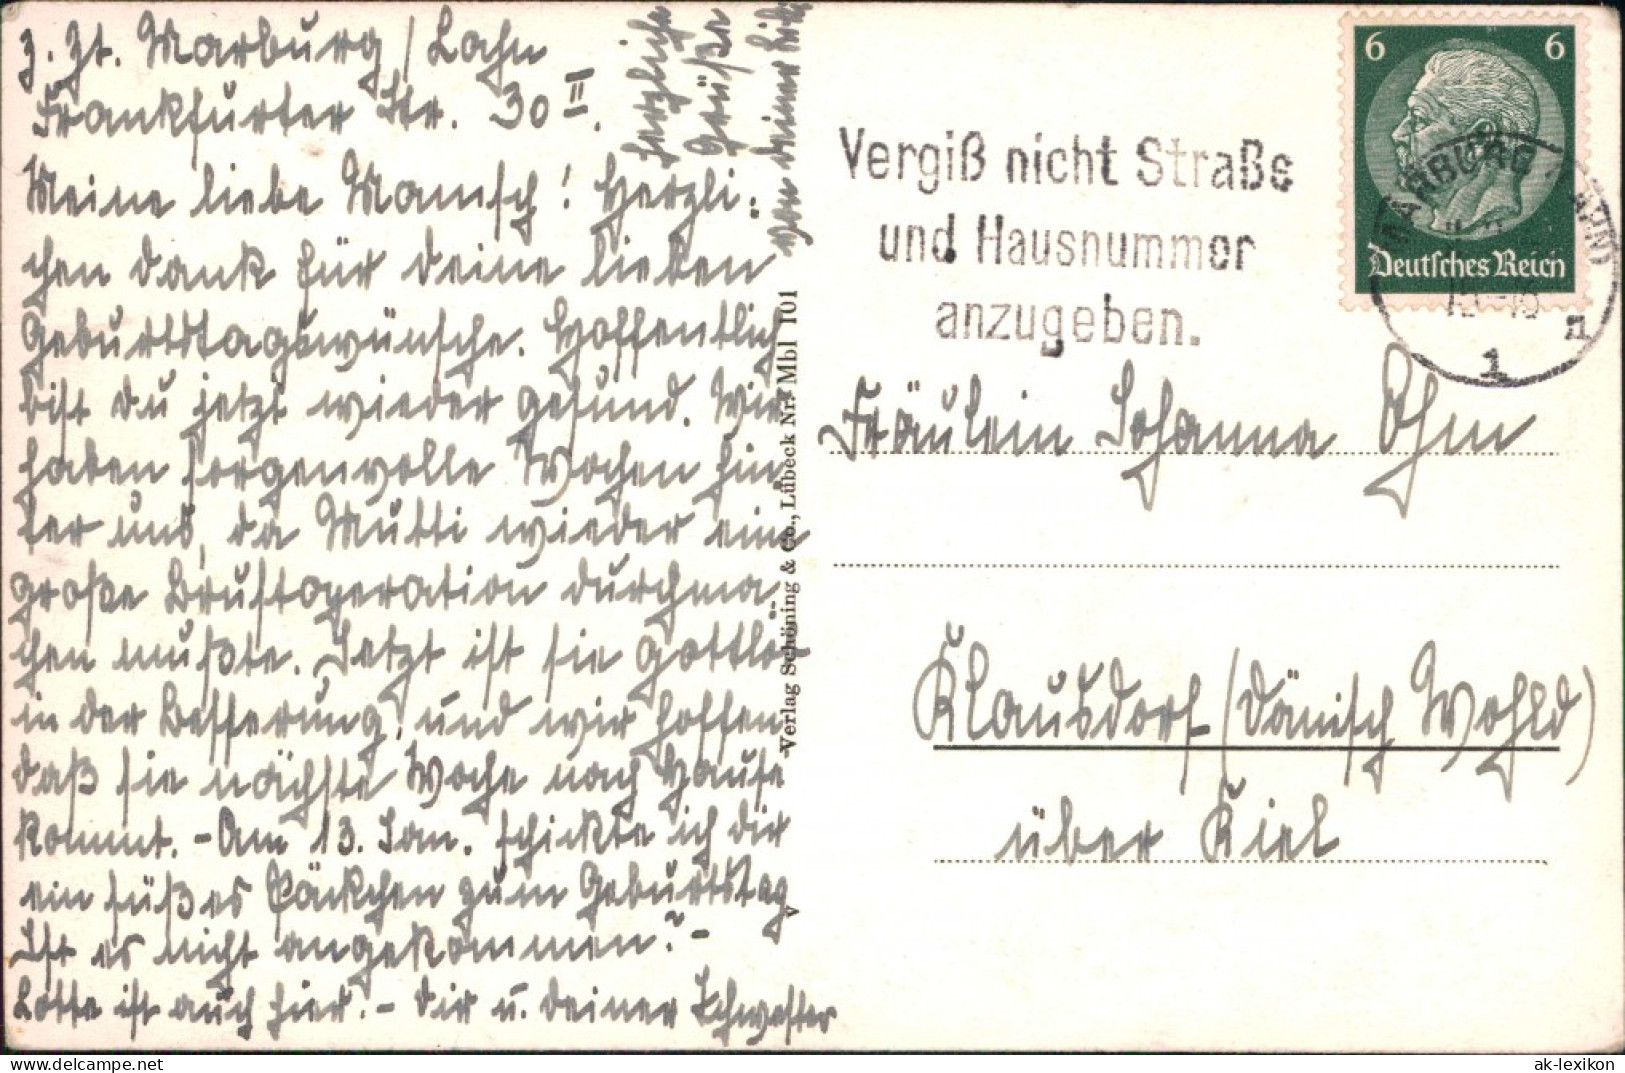 z. Zt. Marburg / Lahn
Frankfurter Str. 30 II.
Meine liebe Mansch! Herzli-
chen Dank für deine lieben
Geburtstagswünsche. Hoffentlich
bist du jetzt wieder gesund. Wir
haben sorgenvolle Wochen hin-
ter uns, da Mutti wieder eine
große Brustoperation durchma-
chen mußte. Jetzt ist sie gottlob
in der Besserung, und wir hoffen
daß sie nächste Woche nach Hause
kommt. - Am 13. Jan. schickte ich dir
ein süßes Päckchen zum Geburtstag
Ist es nicht angekommen? -
Lotte ist auch hier. - Dir u. deiner Schwester
herzliche
Grüße
von deiner
Verlag Schöning & Co., Lübeck Nr. Mbl 101
Vergiß nicht Straße
und Hausnummer
anzugeben.
6 6
Deutsches Reich
MARBURG (LAHN)
1
n
Fräulein Johanna Ohm
Klausdorf (Dänisch Wohld)
über Kiel
https://www.delcampe.net
ak-lexikon